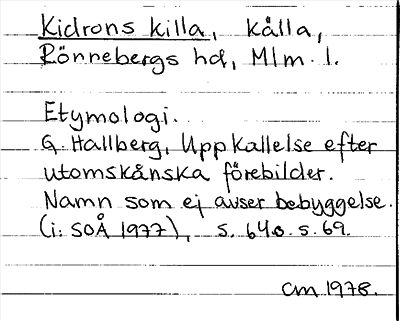 Kidrons killa, källa,
Rönnebergs hd, Mlm. l.
Etymologi.
G. Hallberg, Uppkallelse efter
utomskånska förebilder.
Namn som ej avser bebyggelse.
(i: SOÅ 1977), s. 64 o. s. 69.
CM 1978.